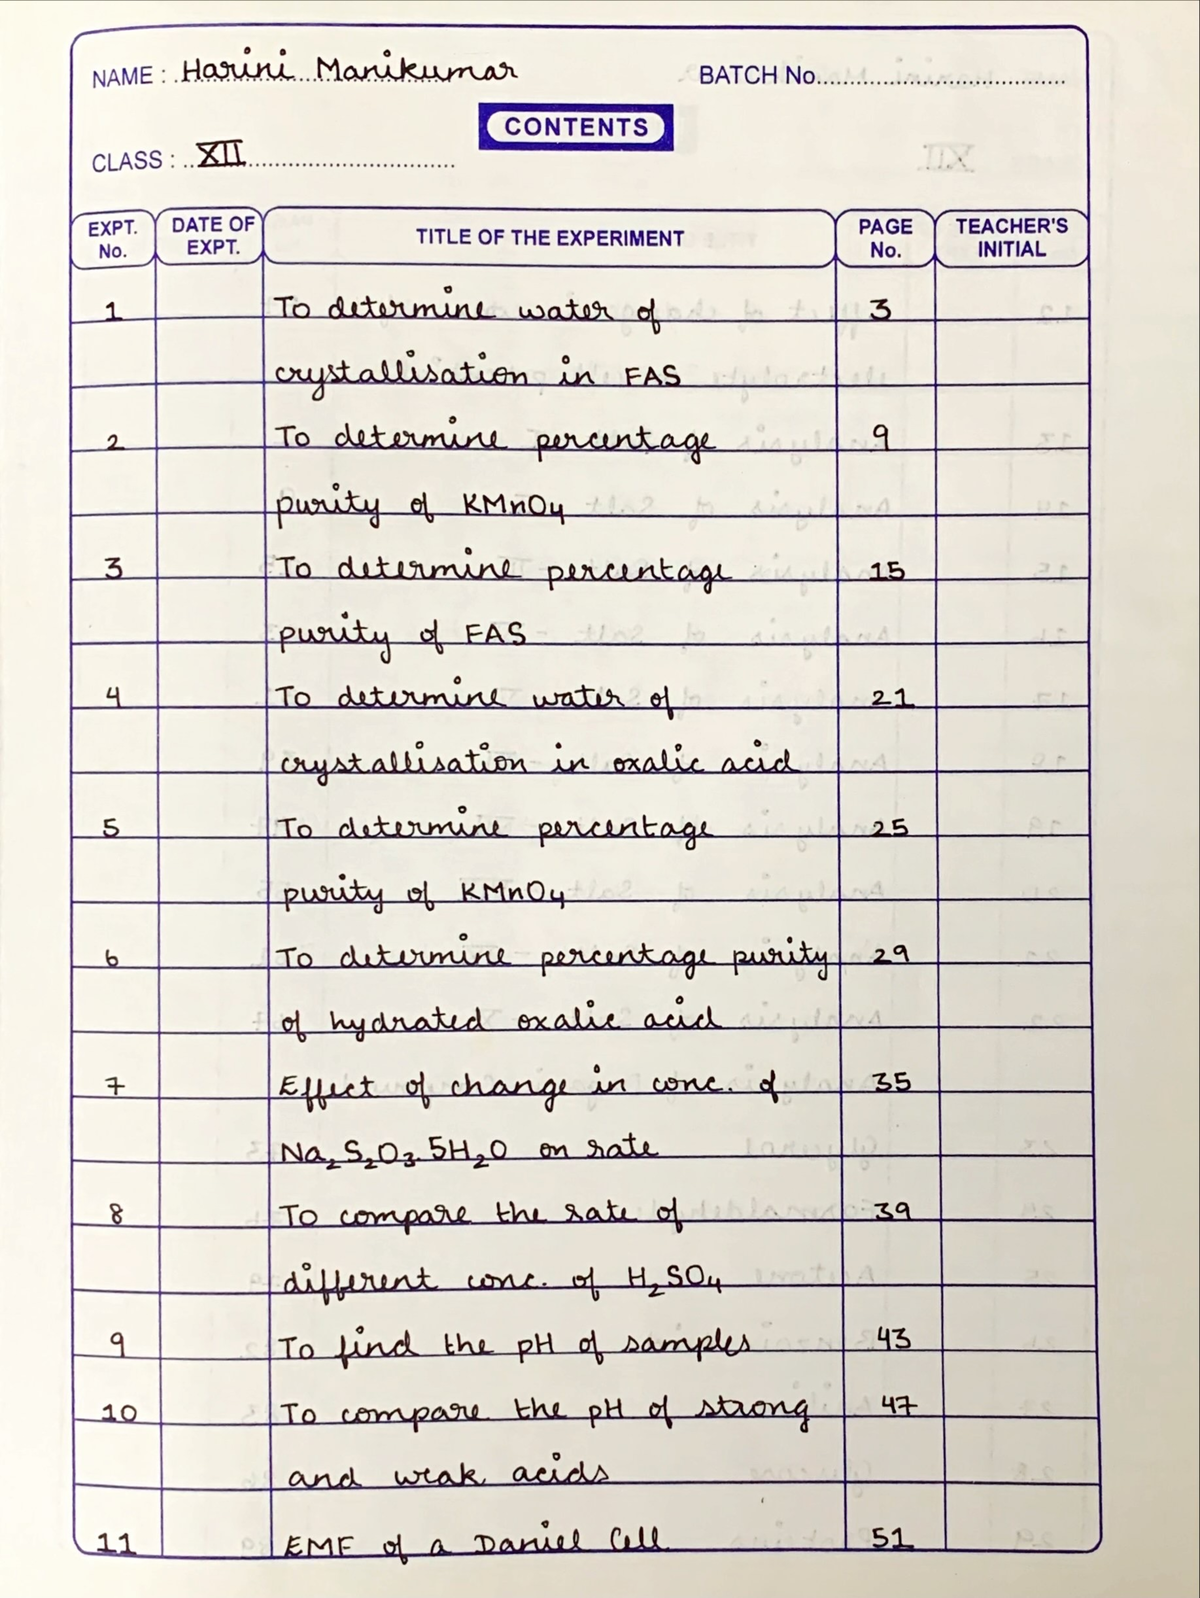 NAME : Harini Manikumar BATCH No.
CONTENTS
CLASS : XII
EXPT. No. DATE OF EXPT. TITLE OF THE EXPERIMENT PAGE No. TEACHER'S INITIAL
1 To determine water of 3
crystallisation in FAS
2 To determine percentage 9
purity of KMnO4
3 To determine percentage 15
purity of FAS
4 To determine water of 21
crystallisation in oxalic acid
5 To determine percentage 25
purity of KMnO4
6 To determine percentage purity 29
of hydrated oxalic acid
7 Effect of change in conc. of 35
Na₂S₂O₃.5H₂O on rate
8 To compare the rate of 39
different conc. of H₂SO₄
9 To find the pH of samples 43
10 To compare the pH of strong 47
and weak acids
11 EMF of a Daniel Cell 51